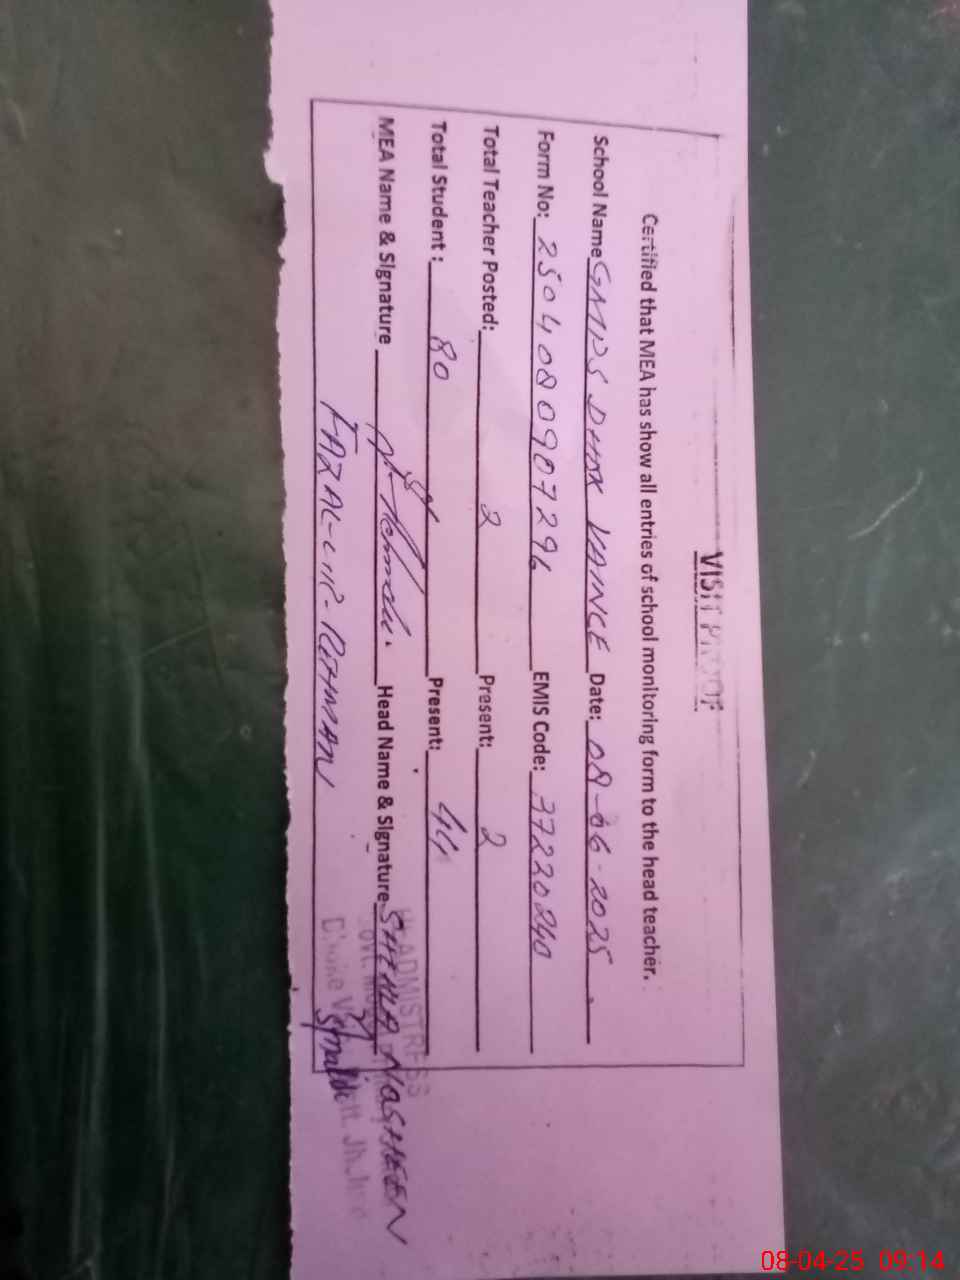 VISIT PROOF
Certified that MEA has show all entries of school monitoring form to the head teacher.
School Name GMPS DHOK VAINCE Date: 08-06-2025
Form No: 250408090907296 EMIS Code: 37220240
Total Teacher Posted: 2 Present: 2
Total Student : 80 Present: 44
MEA Name & Signature Head Name & Signature SHEHLA NOSHEEN
FAZAL-UR-REHMAN
ADMISTRESS
08-04-25 09:14